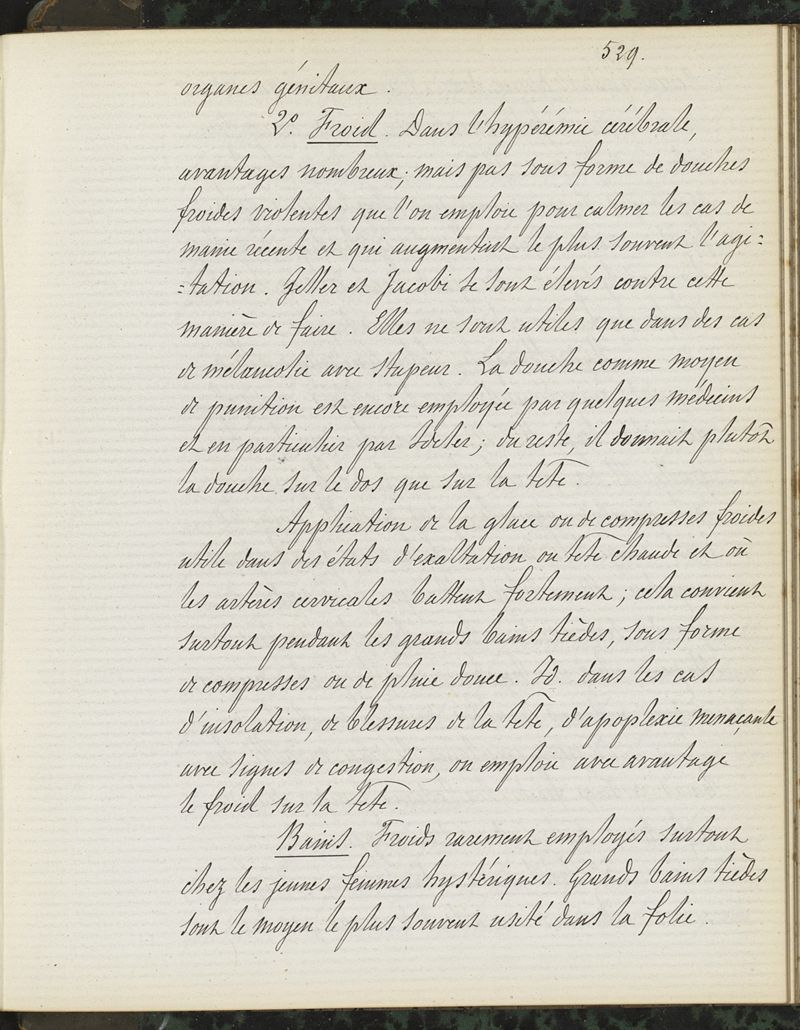 529.
organes génitaux.
2º. Froid. Dans l'hypérémie cérébrale,
avantages nombreux; mais pas sous forme de douches
froides violentes que l'on emploie pour calmer les cas de
manie récente et qui augmentent le plus souvent l'agi=
=tation. Zeller et Jacobi se sont élevés contre cette
manière de faire. Elles ne sont utiles que dans des cas
de mélancolie avec stupeur. La douche comme moyen
de punition est encore employée par quelques médecins
et en particulier par Ideler; du reste, il donnait plutôt
la douche sur le dos que sur la tête.
Application de la glace ou de compresses froides
utile dans des états d'exaltation ou tête chaude et où
les artères cervicales battent fortement; cela convient
surtout pendant les grands bains tièdes, sous forme
de compresses ou de pluie douce. Id. dans les cas
d'insolation, de blessures de la tête, d'apoplexie menaçante
avec signes de congestion, on emploie avec avantage
le froid sur la tête.
Bains. Froids rarement employés surtout
chez les jeunes femmes hystériques. Grands bains tièdes
sont le moyen le plus souvent usité dans la folie.